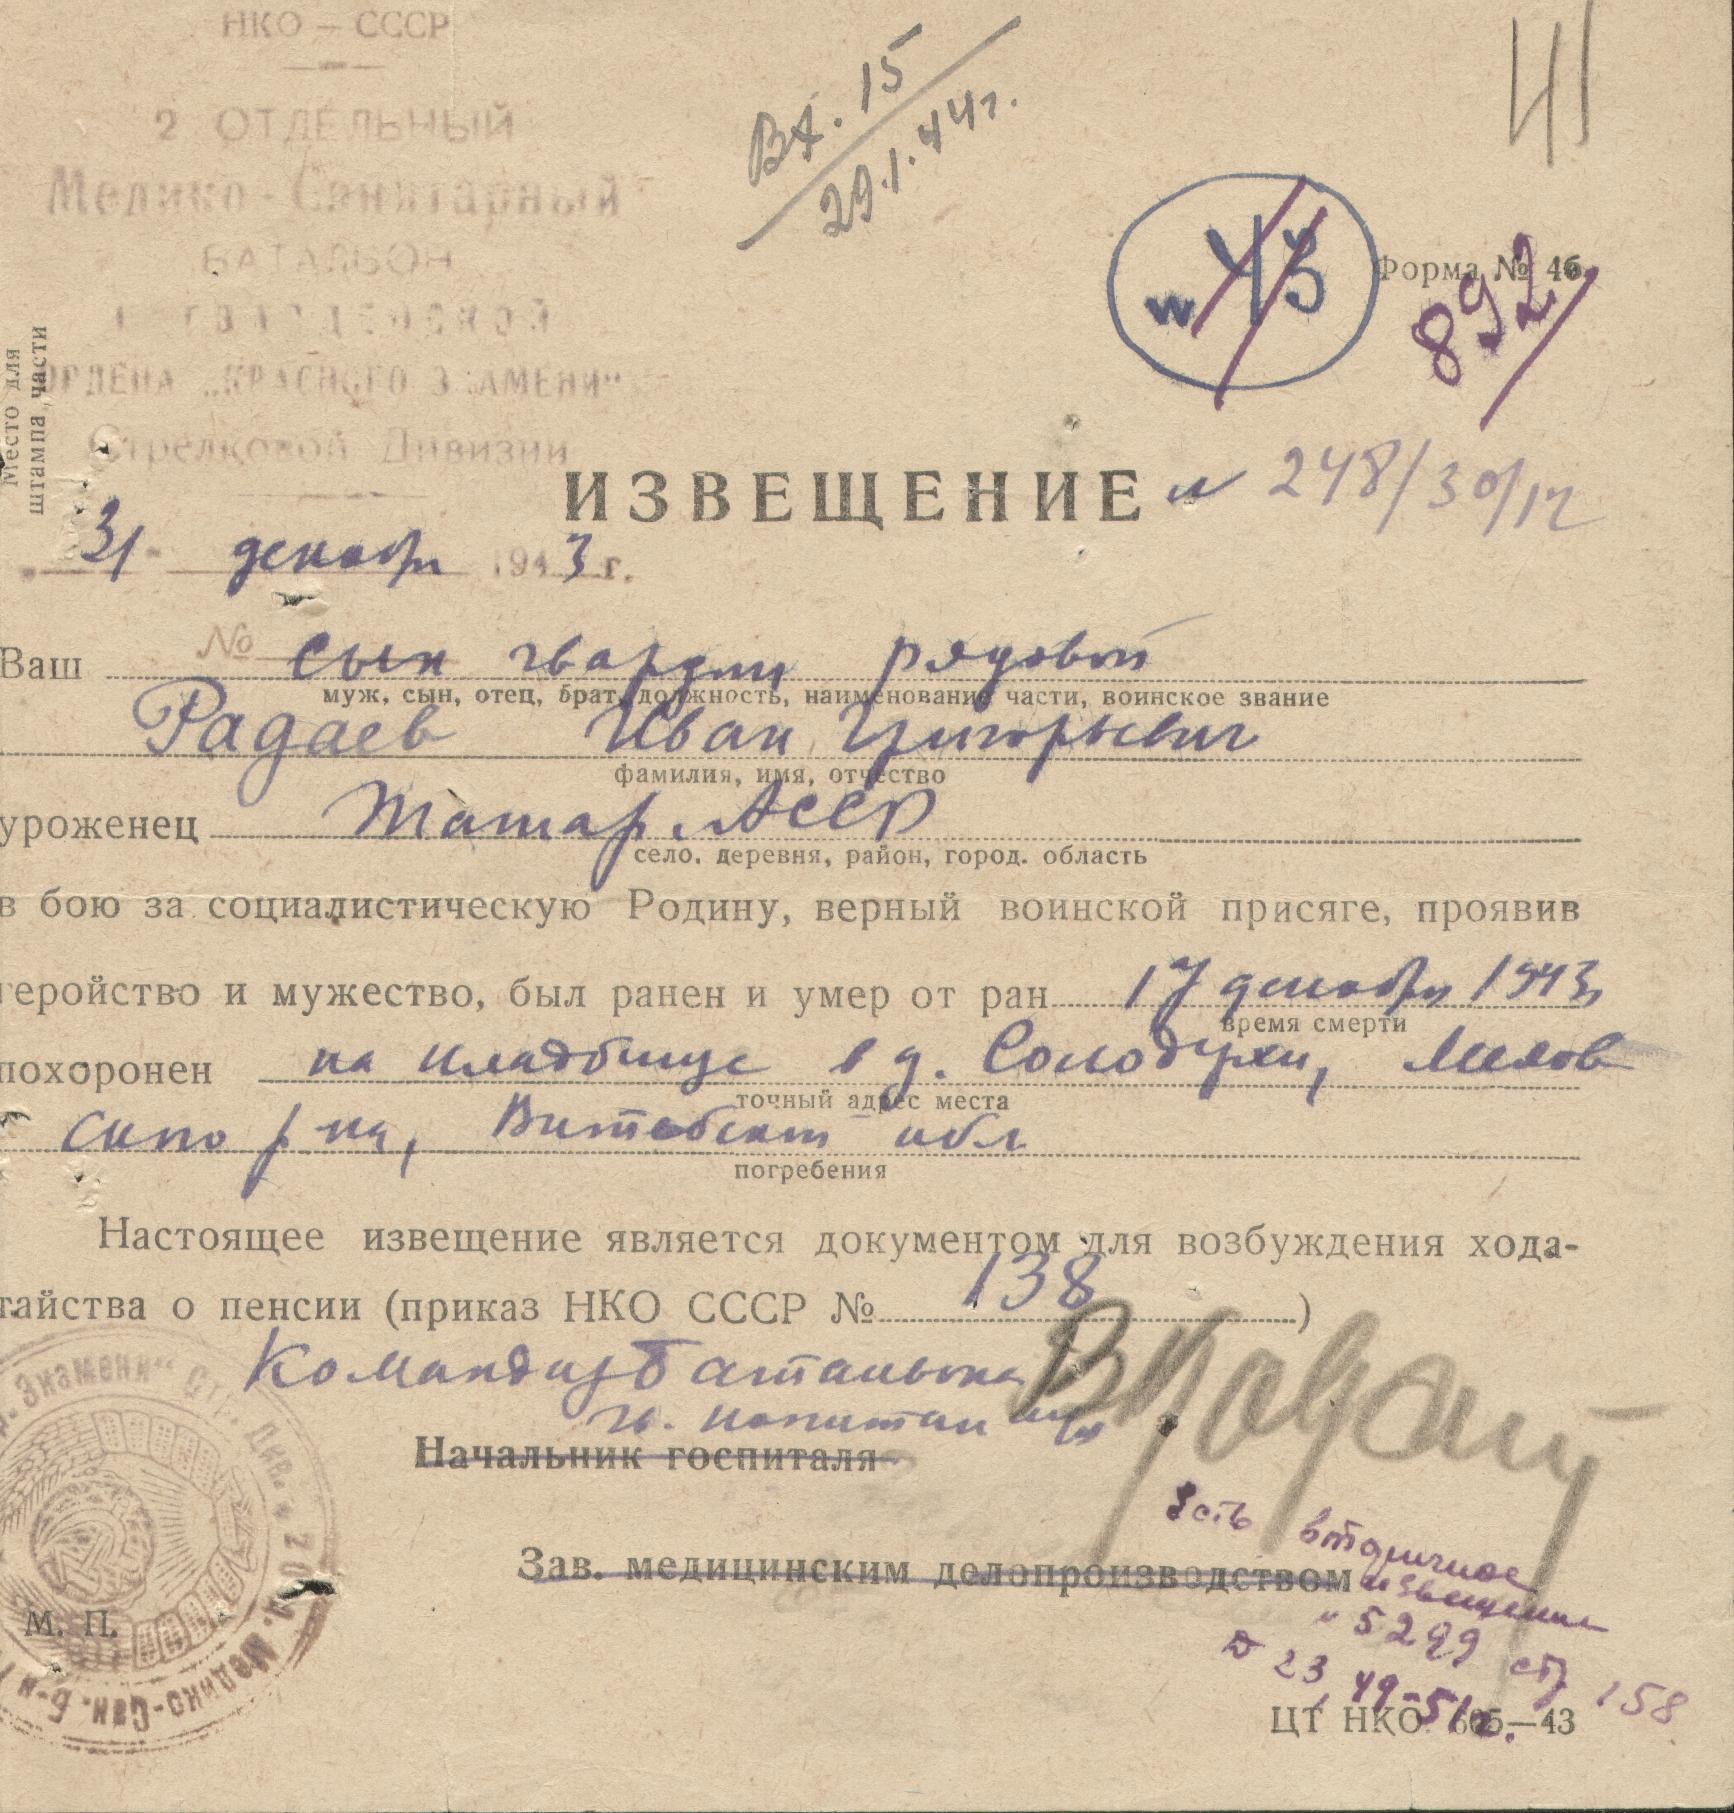 НКО — СССР
2 ОТДЕЛЬНЫЙ
Медико-Санитарный
БАТАЛЬОН
ГВАРДЕЙСКОЙ
ОРДЕНА „КРАСНОГО ЗНАМЕНИ“
Стрелковой Дивизии
Место для
штампа части
Вх. 15
29.1.44г.
41
N 43
Форма № 4б
892
ИЗВЕЩЕНИЕ № 248/30/12
31 декабр 1943 г.
№
Ваш сын гвардии рядовой
муж, сын, отец, брат, должность, наименование части, воинское звание
Радаев Иван Григорьевич
фамилия, имя, отчество
уроженец Татар. АССР
село, деревня, район, город, область
в бою за социалистическую Родину, верный воинской присяге, проявив
геройство и мужество, был ранен и умер от ран 17 декабря 1943
время смерти
похоронен на кладбище в д. Солодухи, Мехов
точный адрес места
ского р-на, Витебской обл
погребения
Настоящее извещение является документом для возбуждения хода-
тайства о пенсии (приказ НКО СССР № 138 )
Командир Батальона
гв. капитан м/с
Начальник госпиталя
Зав. медицинским делопроизводством
Есть вторичное
извещение
№ 5299 стр 158
Д 23
49-51г.
М. П.
Знамени“ Стр. Див. 2 Отд. Медико-Сан. Б-н
ЦТ НКО 605—43